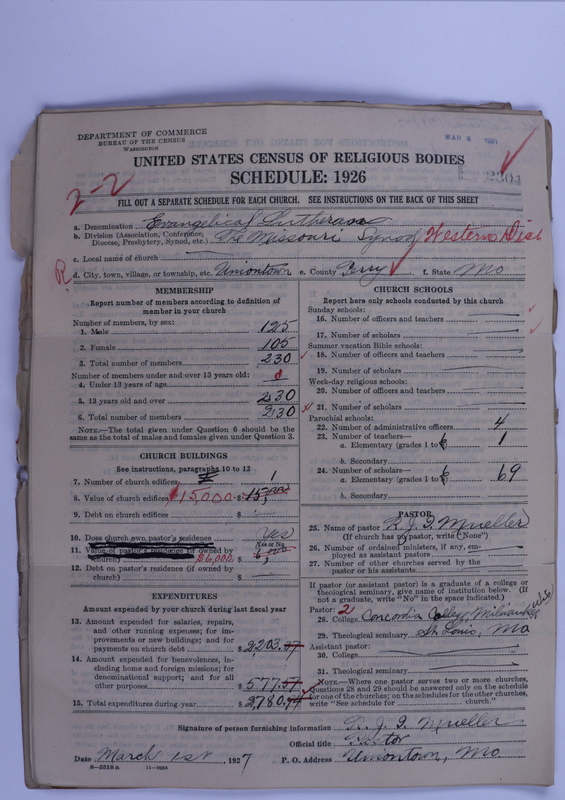 DEPARTMENT OF COMMERCE
BUREAU OF THE CENSUS
WASHINGTON
MAR 2
UNITED STATES CENSUS OF RELIGIOUS BODIES
SCHEDULE: 1926
2304
2-2
FILL OUT A SEPARATE SCHEDULE FOR EACH CHURCH. SEE INSTRUCTIONS ON THE BACK OF THIS SHEET
a. Denomination Evangelical Lutheran
b. Division (Association, Conference, Diocese, Presbytery, Synod, etc.) The Missouri Synod Western Dist
c. Local name of church
R
d. City, town, village, or township, etc. Uniontown e. County Perry f. State Mo
MEMBERSHIP
Report number of members according to definition of
member in your church
Number of members, by sex:
1. Male 125
2. Female 105
3. Total number of members 230
Number of members under and over 13 years old:
4. Under 13 years of age
5. 13 years old and over 230
6. Total number of members 230
NOTE.—The total given under Question 6 should be
the same as the total of males and females given under Question 3.
CHURCH BUILDINGS
See instructions, paragraphs 10 to 12
7. Number of church edifices 1
8. Value of church edifices 15,000 $ 15,000
9. Debt on church edifices $
10. Does church own pastor's residence yes
Yes or No
11. Value of pastor's residence (if owned by
church) $6,000 $ 6,000
12. Debt on pastor's residence (if owned by
church) $
EXPENDITURES
Amount expended by your church during last fiscal year
13. Amount expended for salaries, repairs,
and other running expenses; for im-
provements or new buildings; and for
payments on church debt $ 2203.37
14. Amount expended for benevolences, in-
cluding home and foreign missions; for
denominational support; and for all
other purposes $ 577.57
15. Total expenditures during year $ 2,780.94
CHURCH SCHOOLS
Report here only schools conducted by this church
Sunday schools:
16. Number of officers and teachers
17. Number of scholars
Summer vacation Bible schools:
18. Number of officers and teachers
19. Number of scholars
Week-day religious schools:
20. Number of officers and teachers
21. Number of scholars
Parochial schools:
22. Number of administrative officers 4
23. Number of teachers—
a. Elementary (grades 1 to 1
b. Secondary
24. Number of scholars—
a. Elementary (grades 1 to 69
b. Secondary
PASTOR
25. Name of pastor Mueller
(If church has no pastor, write "None")
26. Number of ordained ministers, if any, em-
ployed as assistant pastors
27. Number of other churches served by the
pastor or his assistants
If pastor (or assistant pastor) is a graduate of a college or
theological seminary, give name of institution below. (If
not a graduate, write "No" in the space indicated.)
Pastor: 2
28. College Concordia College, Milwaukee, Wis.
29. Theological seminary St. Louis, Mo
Assistant pastor:
30. College
31. Theological seminary
NOTE.—Where one pastor serves two or more churches,
Questions 28 and 29 should be answered only on the schedule
for one of the churches; on the schedules for the other churches,
write "See schedule for church."
Signature of person furnishing information Mueller
Official title Pastor
Date March 1st, 1927 P. O. Address Uniontown, Mo.